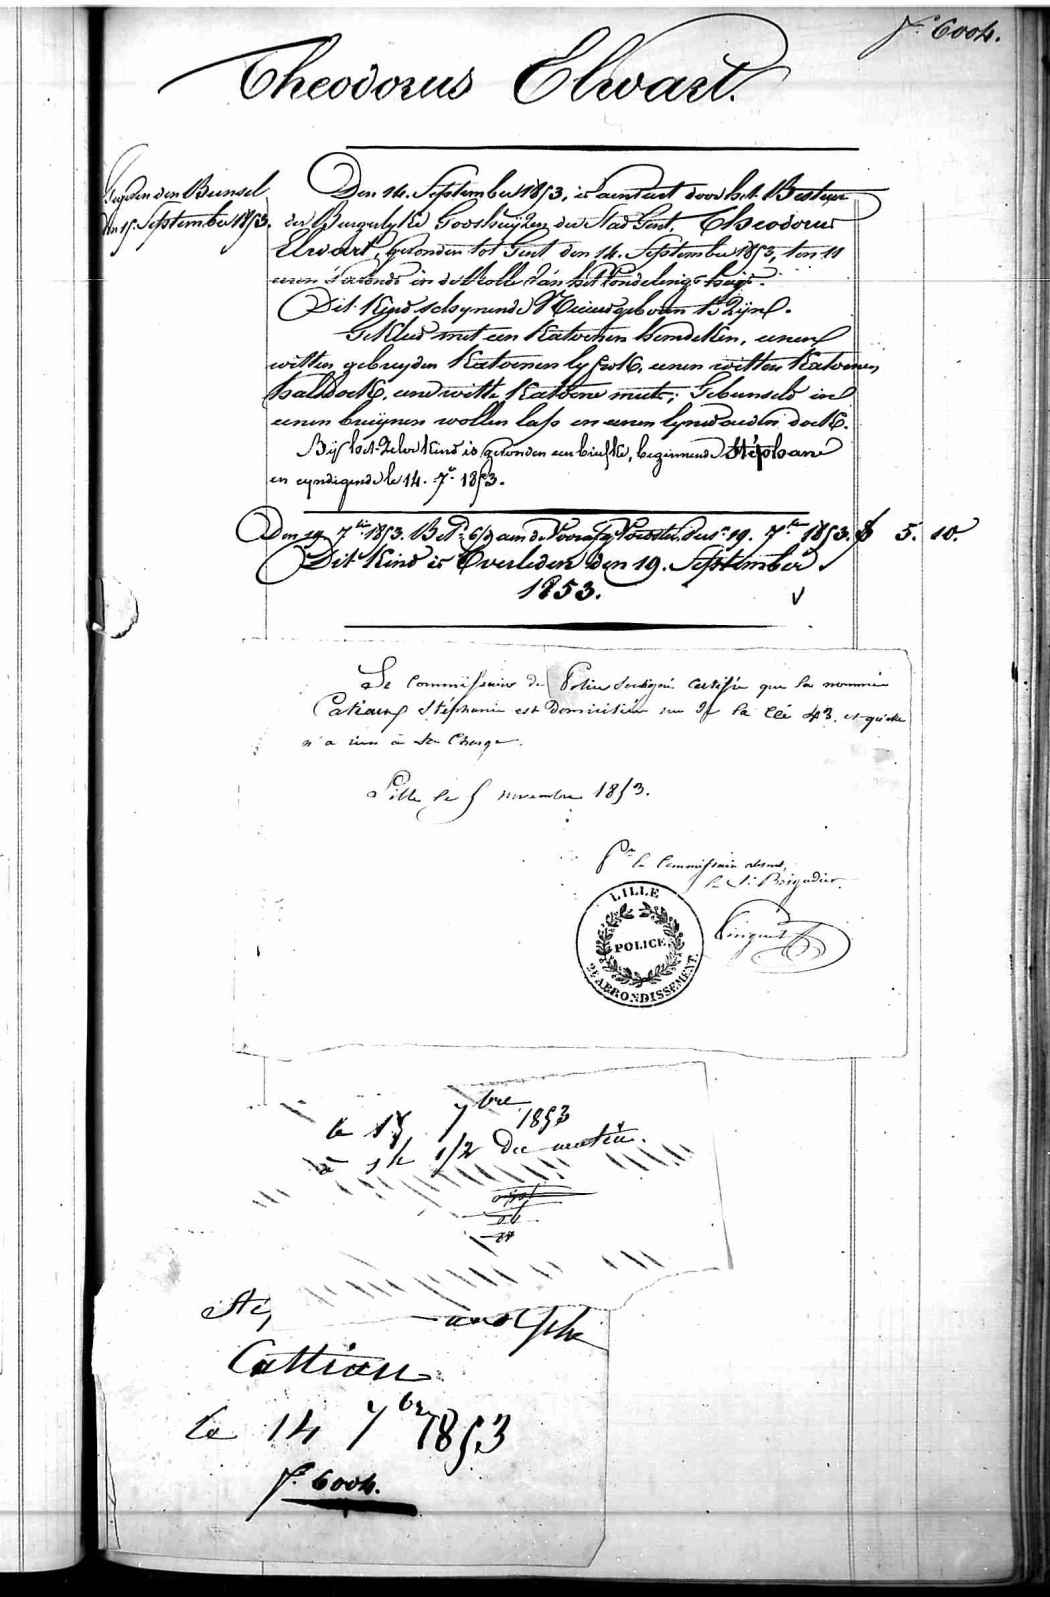 Fº 6004.
Theodorus Elwart.
Gegeven den Bunsel
den 15. September 1853.
Den 14. September 1853, is aenveert door het Bestuer
der Burgerlyke Godshuijzen der Stad Gent, Theodorus
Elwart, gevonden tot Gent den 14. September 1853, ten 11
uren s'avonds in de Rolle van het Vondelingshuijs.
Dit Kind schynende Nieuwgeboren te Zijn.
Gekleed met een Katoenen hemdeken, eenen
witten gebreyden Katoenen lyfrok, eenen witten Katoenen
halsdoek, eene witte Katoene muts; Gebunseld in
eenen bruijnen wollen lap en eenen lynwaeden doek.
Bij het Zelve Kind is gevonden een briefke, beginnende Stéphane
en eyndigende le 14. 7re 1853.
Den 19. 7bre 1853. Bet. 6/9 aen de Voorsz. Voedster. dus 19. 7bre 1853. 5. 10.
Dit Kind is Overleden den 19. September
1853.
Le Commissaire de Police soussigné certifie que la nommée
Catiaux Stéphanie est Domiciliée rue de la Clé 43. et qu'elle
n'a rien à sa Charge.
Lille le 5 novembre 1853.
Pr le Commissaire absent,
le S. Brigadier.
LILLE
POLICE
2e ARRONDISSEMENT.
le 15 7bre 1853
à 1 h 1/2 du matin.
Sté
Cattiau
le 14 7bre 1853
Fº 6004.